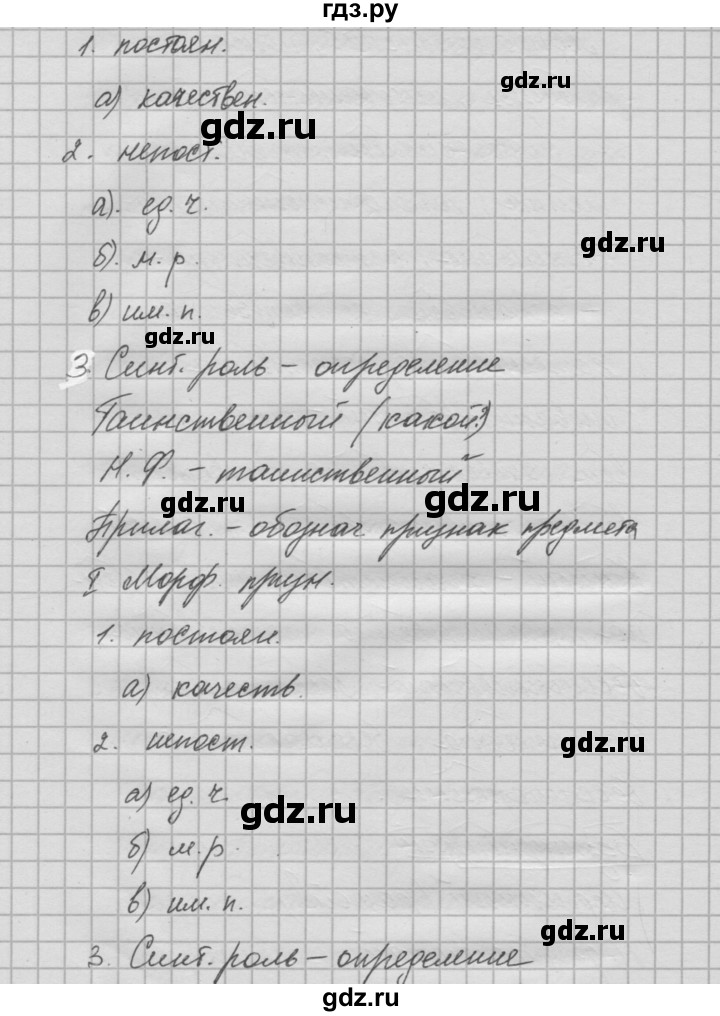 гдз.ру
1. постоян.
gdz.ru
а) качествен.
gdz.ru
2. непост.
а). ед. ч.
gdz.ru
б). м. р.
в) им. п.
gdz.ru
3. Синт. роль – определение
Таинственный (какой?)
Н. Ф. – таинственный
gdz.ru
gdz.ru
Прилаг. – обознач признак предмета
I Морф. призн.
1. постоян.
а) качеств.
2. непост.
gdz.ru
а) ед. ч.
gdz.ru
б) м. р.
в) им. п.
gdz.ru
3. Синт. роль – определение
gdz.ru